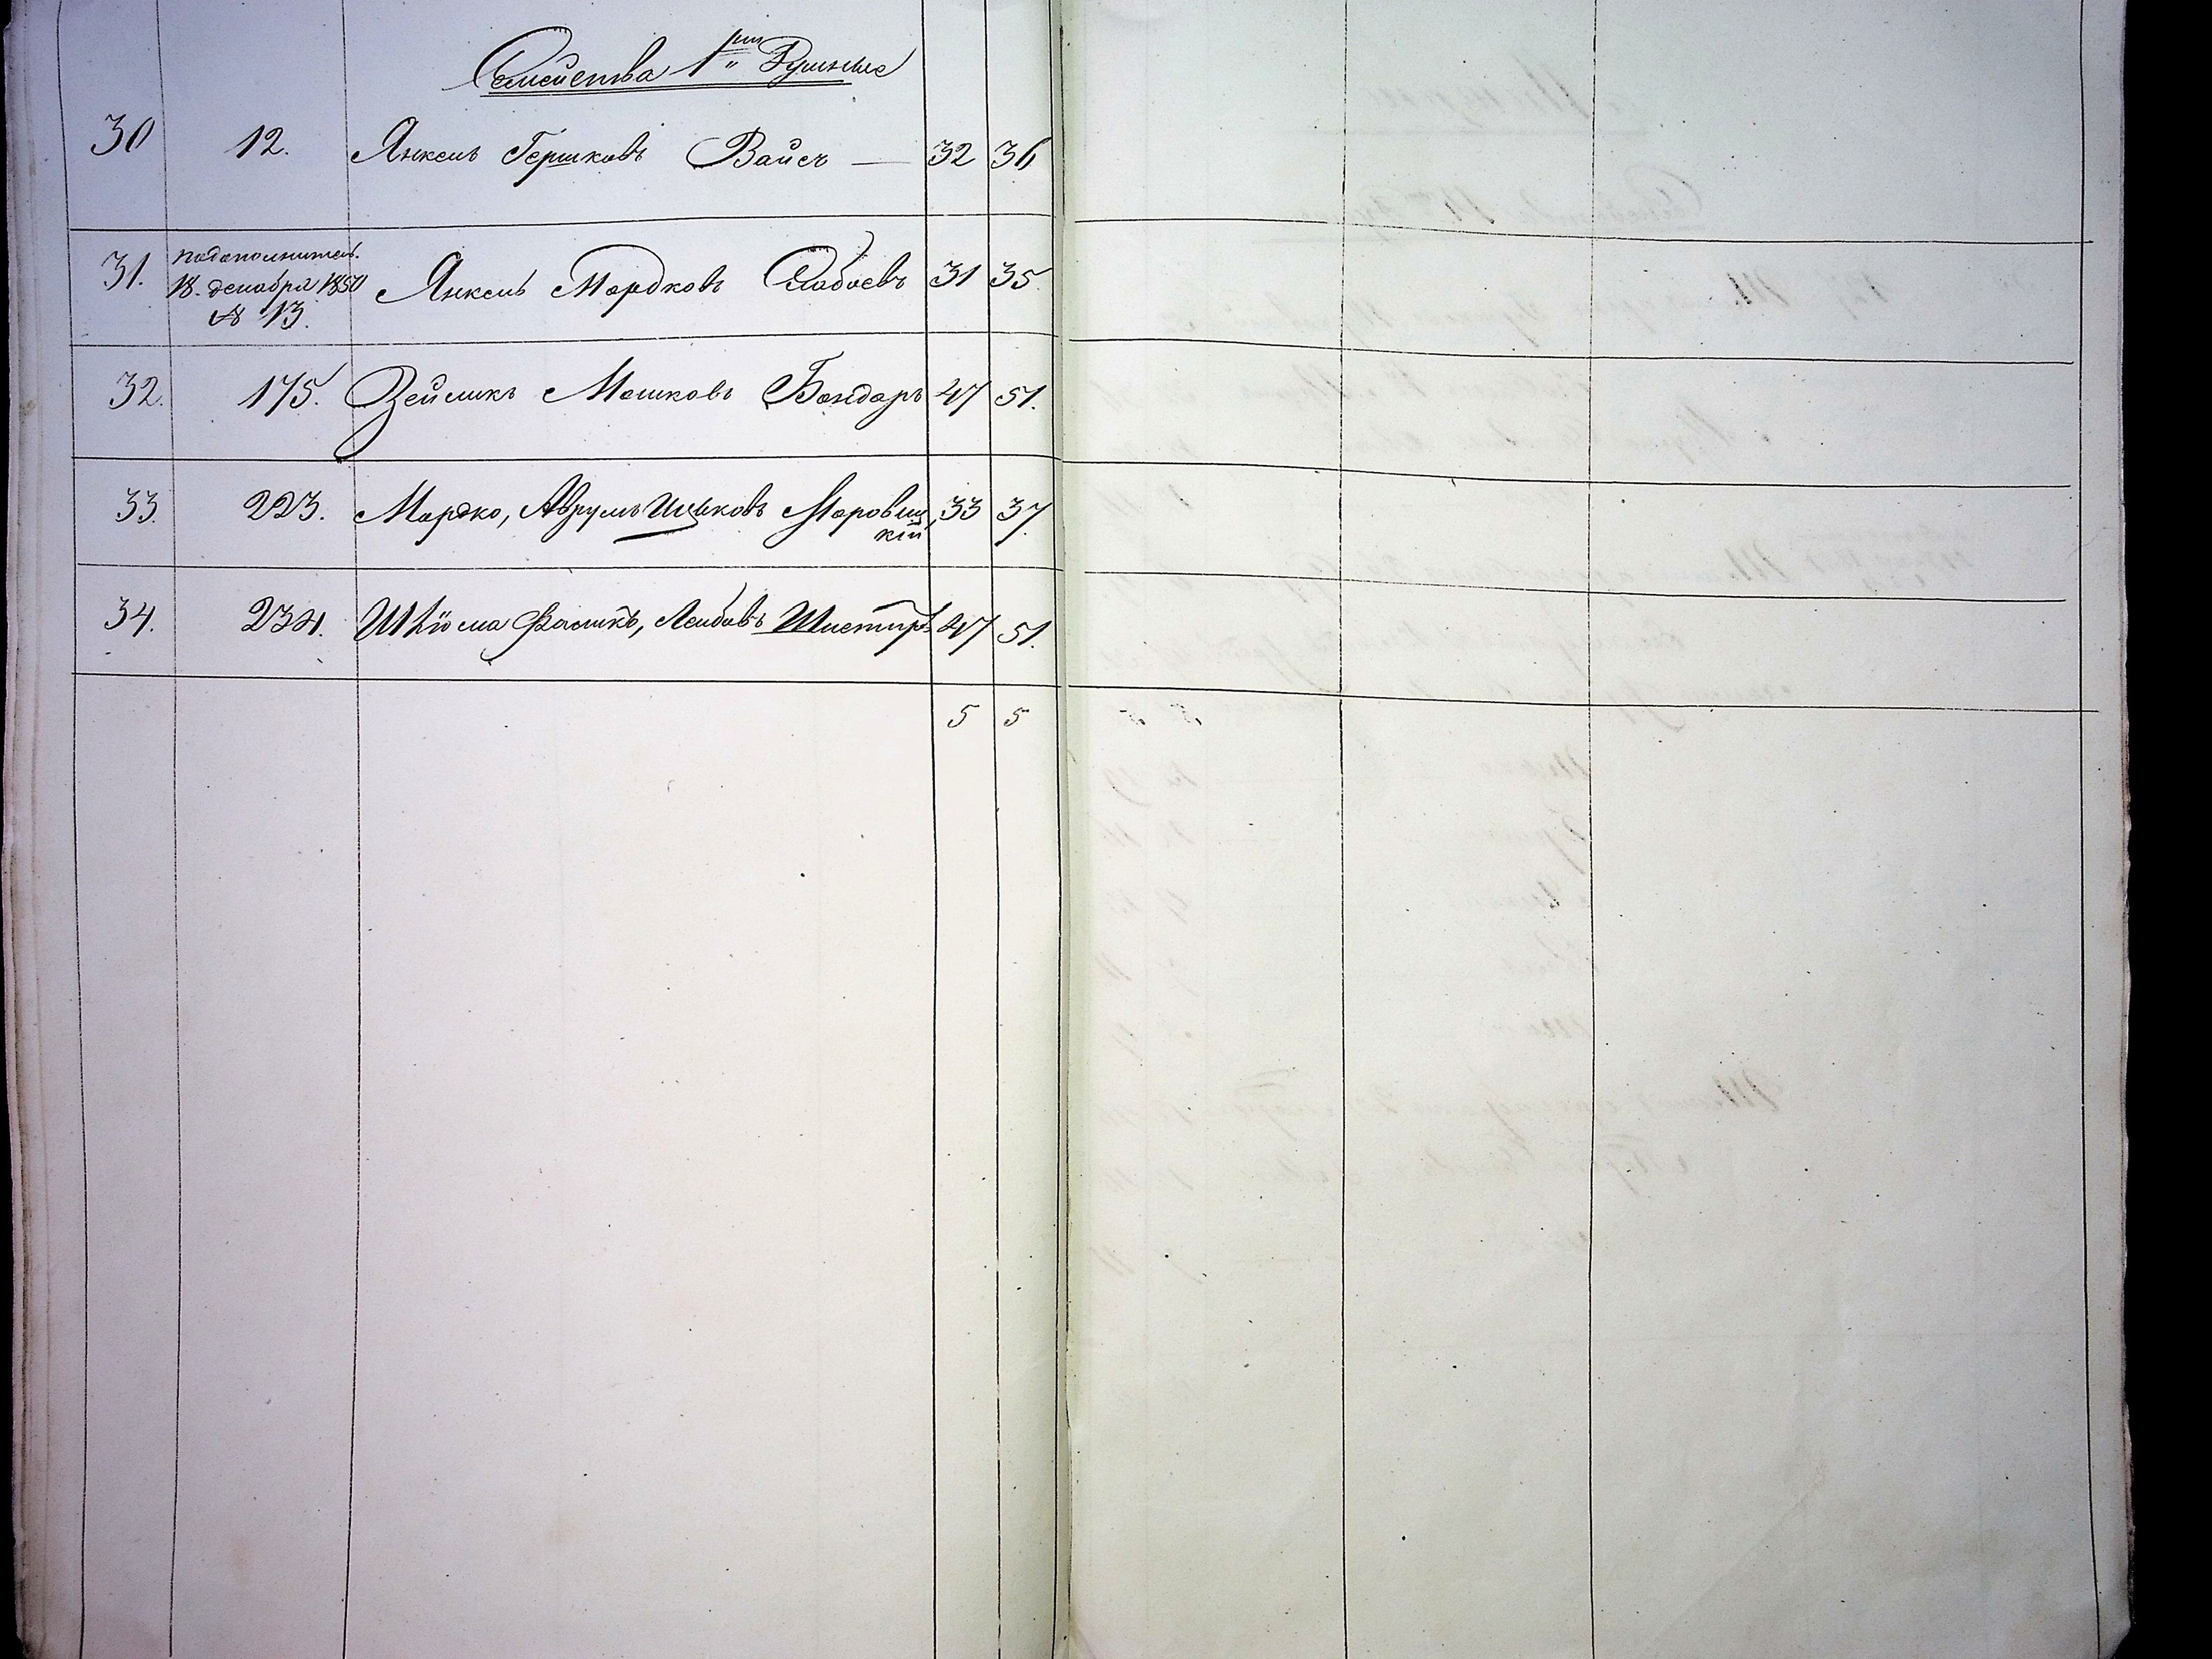 Семейства 1ㅡрит Душные
30 12. Янкель Гершковъ Вайсъ — 32 36
31. подополнитель. 18. декабря 1850 № 13. Янкель Мордковъ Слабоевъ 31 35.
32. 175. Зейликъ Мошковъ Бондарь 47 51.
33. 223. Мордко, Аврумъ Ицьковъ Маровщ 33 37.
кій
34. 234. Шліома Фаликъ, Лейбовъ Шистиръ 47 51.
5 5